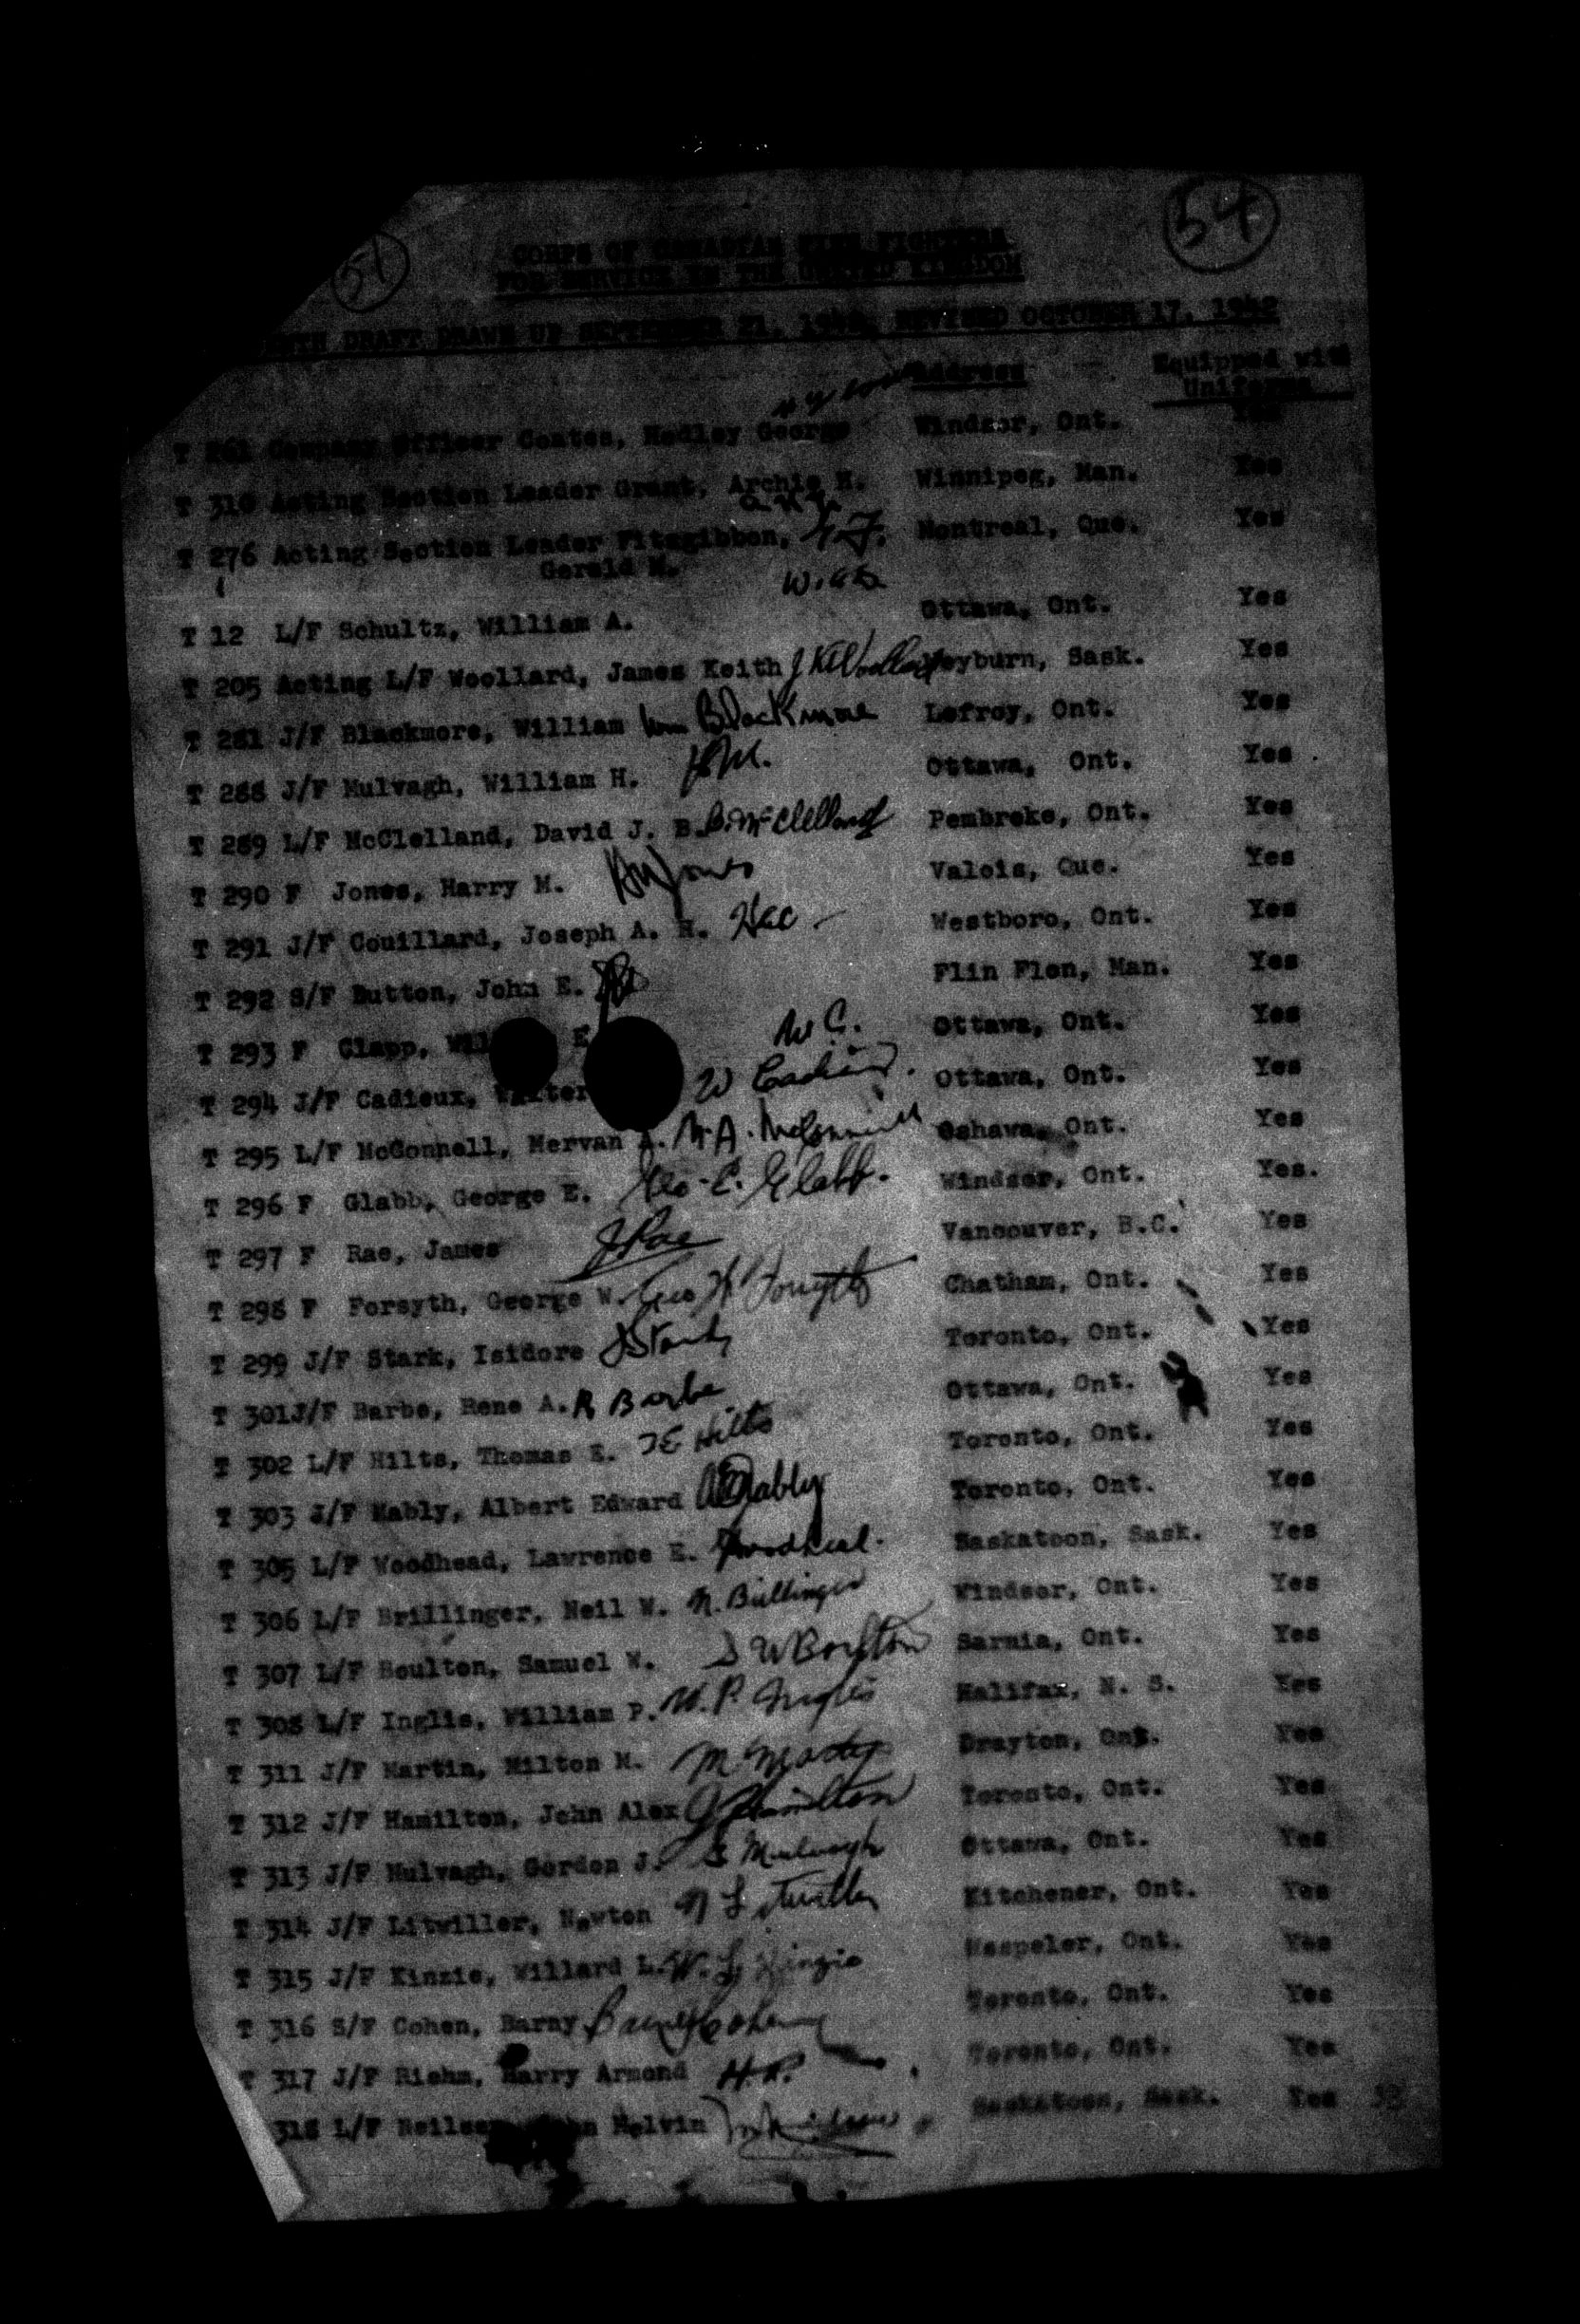 51
54
CORPS OF CANADIAN FIRE FIGHTERS
FOR SERVICE IN THE UNITED KINGDOM
DRAFT DRAWN UP SEPTEMBER 21, 1942, REVISED OCTOBER 17, 1942
Address Equipped with
Uniforms
T 261 Company Officer Coates, Hedley George Windsor, Ont. Yes
T 310 Acting Section Leader Grant, Archie H. Winnipeg, Man. Yes
T 276 Acting Section Leader Fitzgibbon, Montreal, Que. Yes
Gerald M.
T 12 L/F Schultz, William A. Ottawa, Ont. Yes
T 205 Acting L/F Woollard, James Keith J K Woollard Weyburn, Sask. Yes
T 281 J/F Blackmore, William Wm Blackmore Lefroy, Ont. Yes
T 288 J/F Mulvagh, William H. Ottawa, Ont. Yes
T 289 L/F McClelland, David J. B. McClelland Pembroke, Ont. Yes
T 290 F Jones, Harry M. HM Jones Valois, Que. Yes
T 291 J/F Couillard, Joseph A. H. Westboro, Ont. Yes
T 292 S/F Button, John E. Flin Flon, Man. Yes
T 293 F Clapp, Wil E W C. Ottawa, Ont. Yes
T 294 J/F Cadieux, Walter W Cadieux. Ottawa, Ont. Yes
T 295 L/F McConnell, Mervan A. M.A. McConnell Oshawa, Ont. Yes
T 296 F Glabb, George E. Geo. E. Glabb. Windsor, Ont. Yes.
T 297 F Rae, James J. Rae Vancouver, B.C. Yes
T 298 F Forsyth, George W. Geo W Forsyth Chatham, Ont. Yes
T 299 J/F Stark, Isidore I Stark Toronto, Ont. Yes
T 301 J/F Barbe, Rene A. R Barbe Ottawa, Ont. Yes
T 302 L/F Hilts, Thomas E. T E Hilts Toronto, Ont. Yes
T 303 J/F Mably, Albert Edward A E Mably Toronto, Ont. Yes
T 305 L/F Woodhead, Lawrence E. Woodhead. Saskatoon, Sask. Yes
T 306 L/F Brillinger, Neil W. N. Brillinger Windsor, Ont. Yes
T 307 L/F Boulton, Samuel W. S W Boulton Sarnia, Ont. Yes
T 308 L/F Inglis, William P. W. P. Inglis Halifax, N. S. Yes
T 311 J/F Martin, Milton M. M M Martin Drayton, Ont. Yes
T 312 J/F Hamilton, John Alex J Hamilton Toronto, Ont. Yes
T 313 J/F Mulvagh, Gordon J. G Mulvagh Ottawa, Ont. Yes
T 314 J/F Litwiller, Newton N Litwiller Kitchener, Ont. Yes
T 315 J/F Kinzie, Willard L. W. L. Kinzie Hespeler, Ont. Yes
T 316 S/F Cohen, Barny Barney Cohen Toronto, Ont. Yes
T 317 J/F Riehm, Harry Armond H.R. Toronto, Ont. Yes
318 L/F Neilsen, John Melvin Saskatoon, Sask. Yes 33